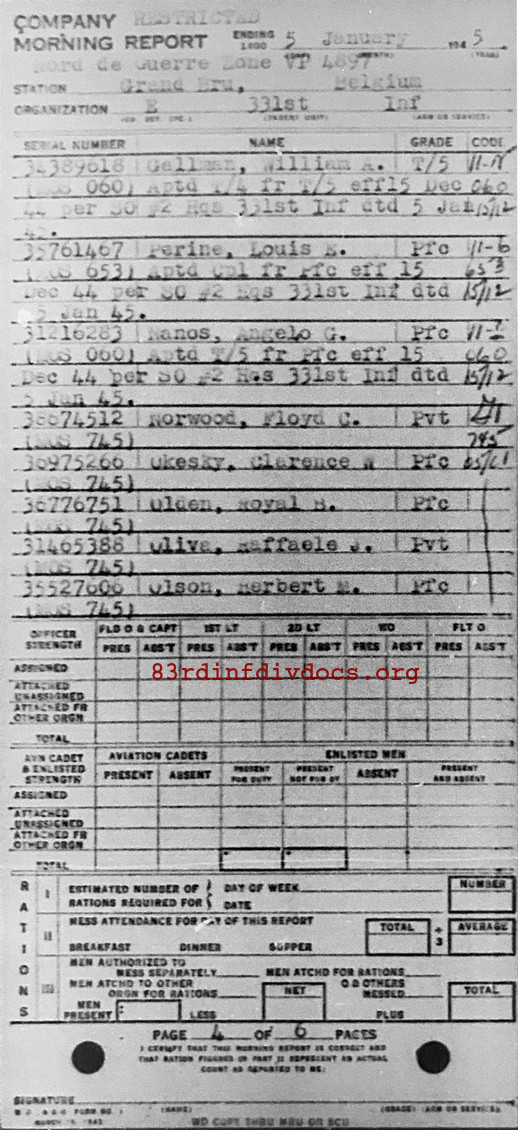 COMPANY RESTRICTED
MORNING REPORT ENDING 2400 5 January 1945
(DAY) (MONTH) (YEAR)
Nord de Guerre Zone VP 4897
STATION Grand Bru, Belgium
ORGANIZATION E 331st Inf
(CO. DET. ETC.) (PARENT UNIT) (ARM OR SERVICE)
SERIAL NUMBER NAME GRADE CODE
34389618 Gallman, William A. T/5
(MOS 060) Aptd T/4 fr T/5 eff 15 Dec 060
44 per SO #2 Hqs 331st Inf dtd 5 Jan 15/12
45.
35761467 Perine, Louis E. Pfc 11-6
(MOS 653) Aptd Cpl fr Pfc eff 15 653
Dec 44 per SO #2 Hqs 331st Inf dtd 15/12
5 Jan 45.
31216283 Nanos, Angelo G. Pfc
(MOS 060) Aptd T/5 fr Pfc eff 15 060
Dec 44 per SO #2 Hqs 331st Inf dtd 15/12
5 Jan 45.
Norwood, Floyd C. Pvt
(MOS 745) 745
36975266 Okesky, Clarence W Pfc
(MOS 745)
36776751 Olden, Royal B. Pfc
(MOS 745)
31465388 Oliva, Raffaele J. Pvt
(MOS 745)
35527606 Olson, Herbert M. Pfc
(MOS 745)
OFFICER STRENGTH FLD O & CAPT 1ST LT 2D LT WO FLT O
PRES ABS'T PRES ABS'T PRES ABS'T PRES ABS'T PRES ABS'T
ASSIGNED
83rdinfdivdocs.org
ATTACHED UNASSIGNED
ATTACHED FR OTHER ORGN
TOTAL
AVN CADET & ENLISTED STRENGTH AVIATION CADETS ENLISTED MEN
PRESENT ABSENT PRESENT FOR DUTY PRESENT NOT FOR DY ABSENT PRESENT AND ABSENT
ASSIGNED
ATTACHED UNASSIGNED
ATTACHED FR OTHER ORGN
TOTAL
RATIONS
I ESTIMATED NUMBER OF DAY OF WEEK NUMBER
RATIONS REQUIRED FOR DATE
II MESS ATTENDANCE FOR DAY OF THIS REPORT TOTAL ÷ 3 AVERAGE
BREAKFAST DINNER SUPPER
III MEN AUTHORIZED TO MESS SEPARATELY MEN ATCHD FOR RATIONS
MEN ATCHD TO OTHER ORGN FOR RATIONS NET O & OTHERS MESSED TOTAL
MEN PRESENT LESS PLUS
PAGE 4 OF 6 PAGES
I CERTIFY THAT THIS MORNING REPORT IS CORRECT AND
THAT RATION FIGURES IN PART II REPRESENT AN ACTUAL
COUNT AS REPORTED TO ME:
SIGNATURE
W.D., A.G.O. FORM NO. 1 (NAME) (GRADE) (ARM OR SERVICE)
MARCH 1943 WD COPY THRU MRU OR SCU